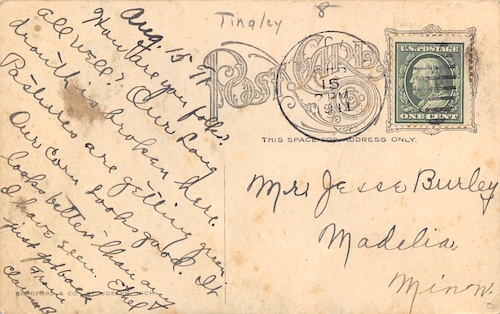 Tingley 8
Aug. 15 th
How are you folks?
all well? Our long
drouth is broken here.
Pastures are getting green.
Our corn looks good. It
looks better than any
I have seen. Ethel &
just got back
From
Clarion
POST CARD
AUG
15
PM
1911
U.S. POSTAGE
ONE CENT
THIS SPACE FOR ADDRESS ONLY.
Mrs Jesse Burley
Madelia
Minn.